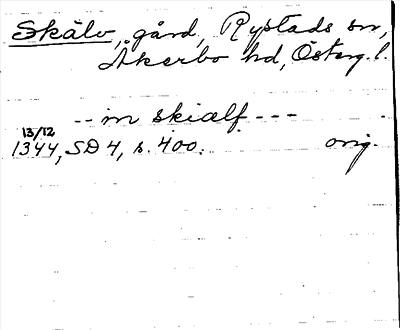 Skälv, gård, Rystads sn,
Åkerbo hd, Österg. l.
-- in skiælf ---
13/12
1344, SD 4, s. 400. orig.